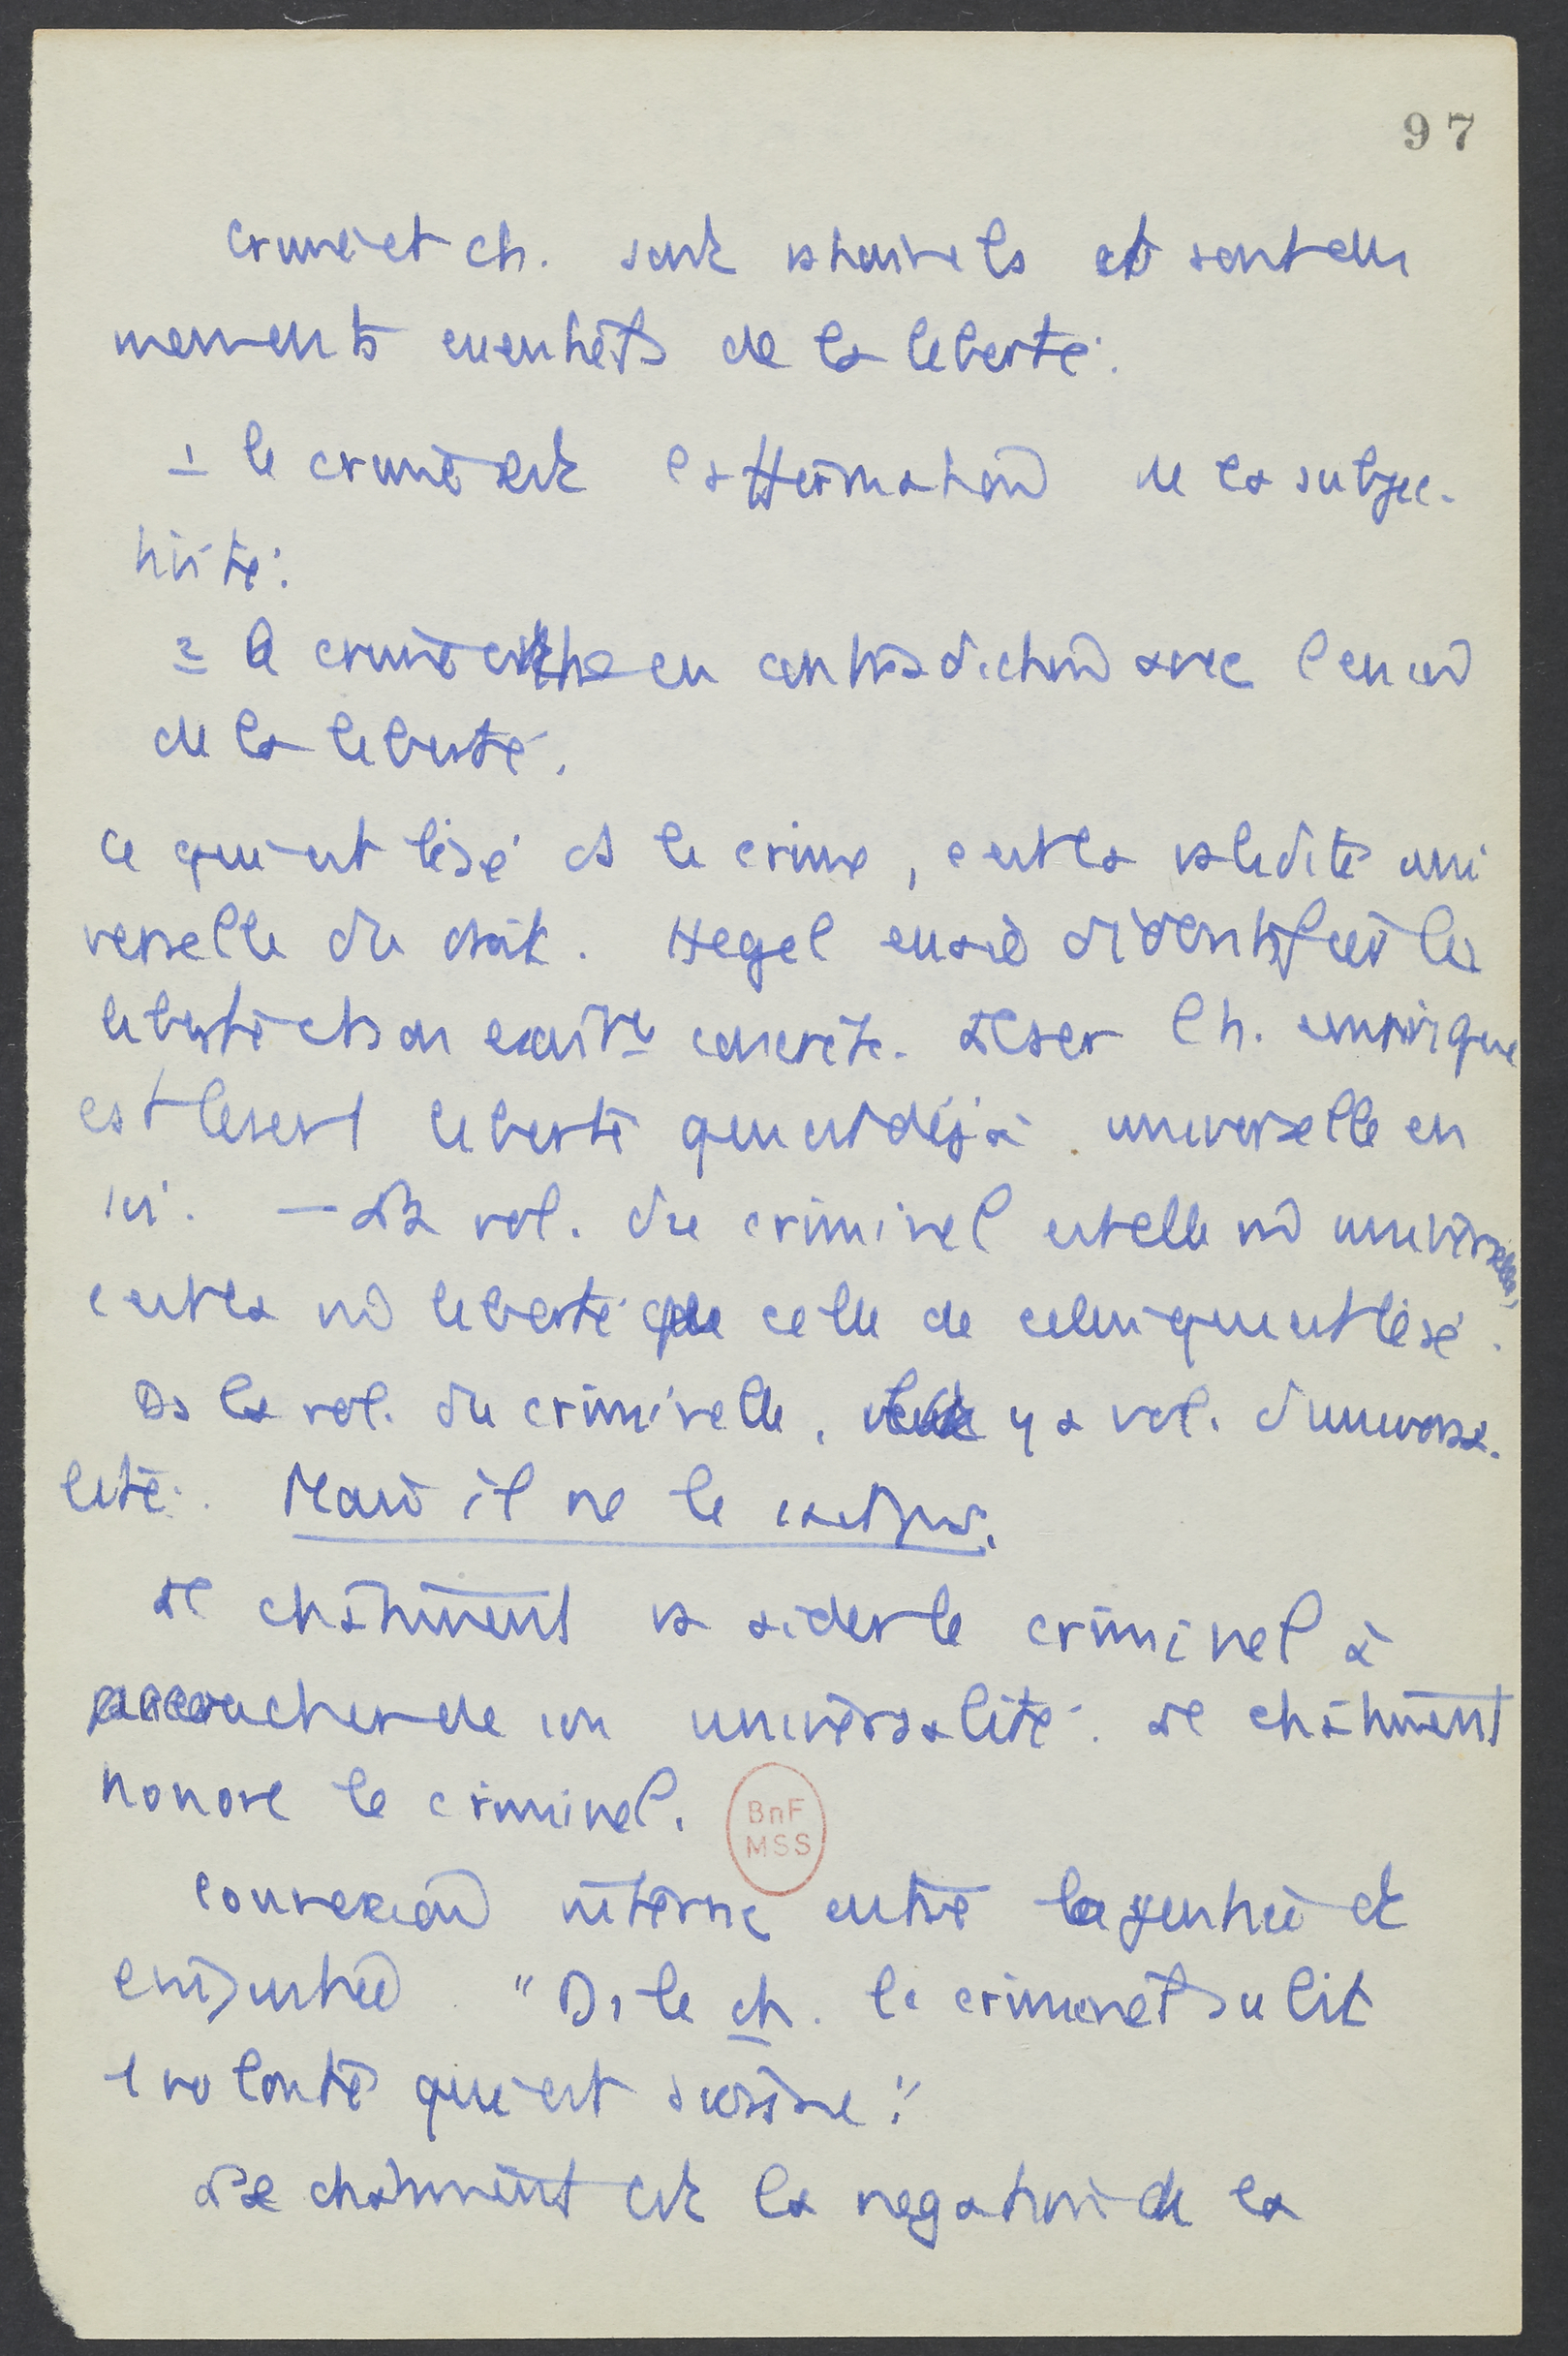 97
crime et ch. sont rationnels et sont des
moments essentiels de la liberté.
1 le crime est l'affirmation de la subjec-
tivité.
2 le crime entre en contradiction avec l'en soi
de la liberté.
Ce qui est lésé ds le crime, c'est la validité uni
verselle du droit. Hegel essaie d'identifier la
liberté et son existce concrète. Léser l'h. empirique
c'est léser 1 liberté qui est déjà universelle en
soi. — La vol. du criminel est elle non universelle,
c'est la non liberté de celle de celui qui est lésé.
Ds la vol. du criminelle, y a vol. d'universa-
lité. Mais il ne le sait pas.
Le châtiment va aider le criminel à
accoucher de son universalité. Le châtiment
honore le criminel.
BnF
MSS
connexion interne entre la justice et
l'injustice "Ds le ch. le criminel subit
1 volonté qui est sienne."
Le châtiment est la négation de la